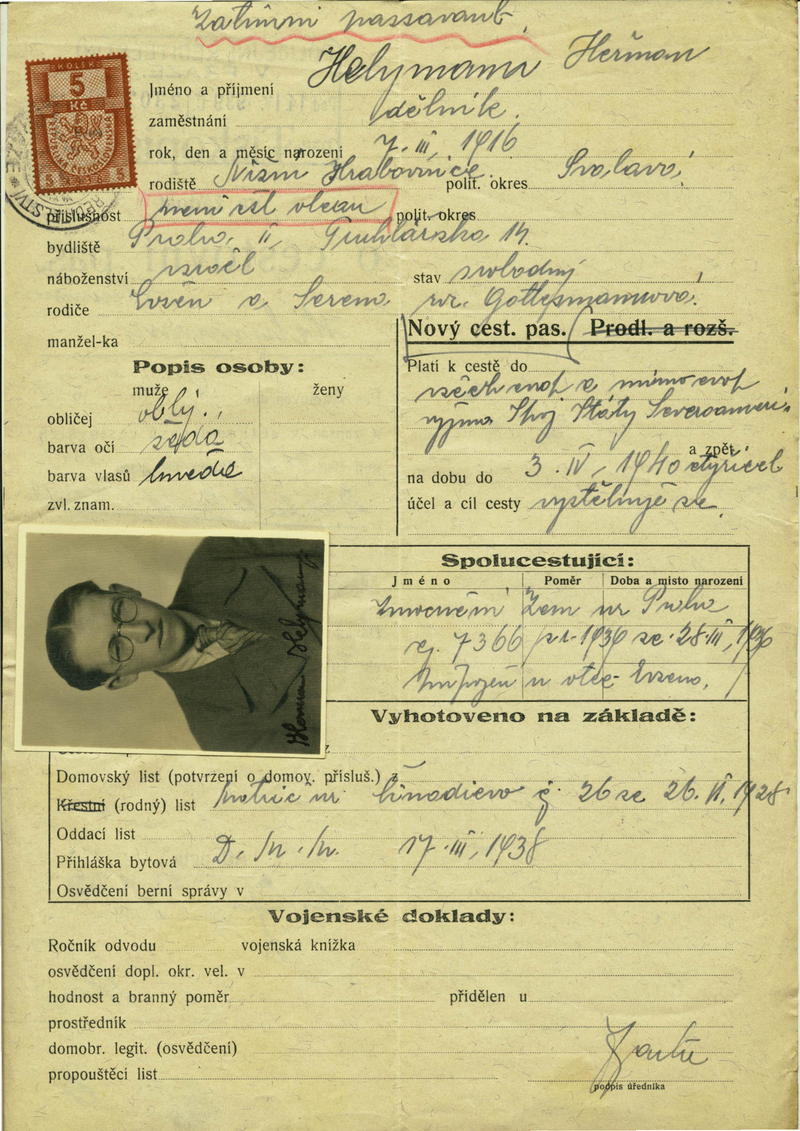 Zatímní passavant.
KOLEK
5
Kč
5 5
Jméno a příjmení Helymann Heřman
zaměstnání dělník.
rok, den a měsíc narození 7. III. 1916
rodiště Nižní Hrabovnice polit. okres Svalava
příslušnost není čsl občan polit. okres
bydliště Praha II, Truhlářská 14.
náboženství izrael stav svobodný
rodiče a Serena roz. Gottesmannová.
manžel-ka
Nový cest. pas. Prodl. a rozš.
Popis osoby:
muže ženy
obličej oblý.
barva očí šedá
barva vlasů hnědá
zvl. znam.
Platí k cestě do
všech evop a mimo evop
vyjma Spoj Státy Severoameri.
a zpět
na dobu do 3. IV. 1940 čtyřicet
účel a cíl cesty vystěhuje se.
Herman Helymann
Spolucestující:
Jméno Poměr Doba a místo narození
Zem Praha
čj. 7366 1936 ze 28. III. 1936
u otce
Vyhotoveno na základě:
Domovský list (potvrzení o domov. přísluš.) z
Křestní (rodný) list č. 26 ze 26. VI. 1928
Oddací list
Přihláška bytová 17. III. 1938
Osvědčení berní správy v
Vojenské doklady:
Ročník odvodu vojenská knížka
osvědčení dopl. okr. vel. v
hodnost a branný poměr přidělen u
prostředník
domobr. legit. (osvědčení)
propouštěcí list
podpis úředníka